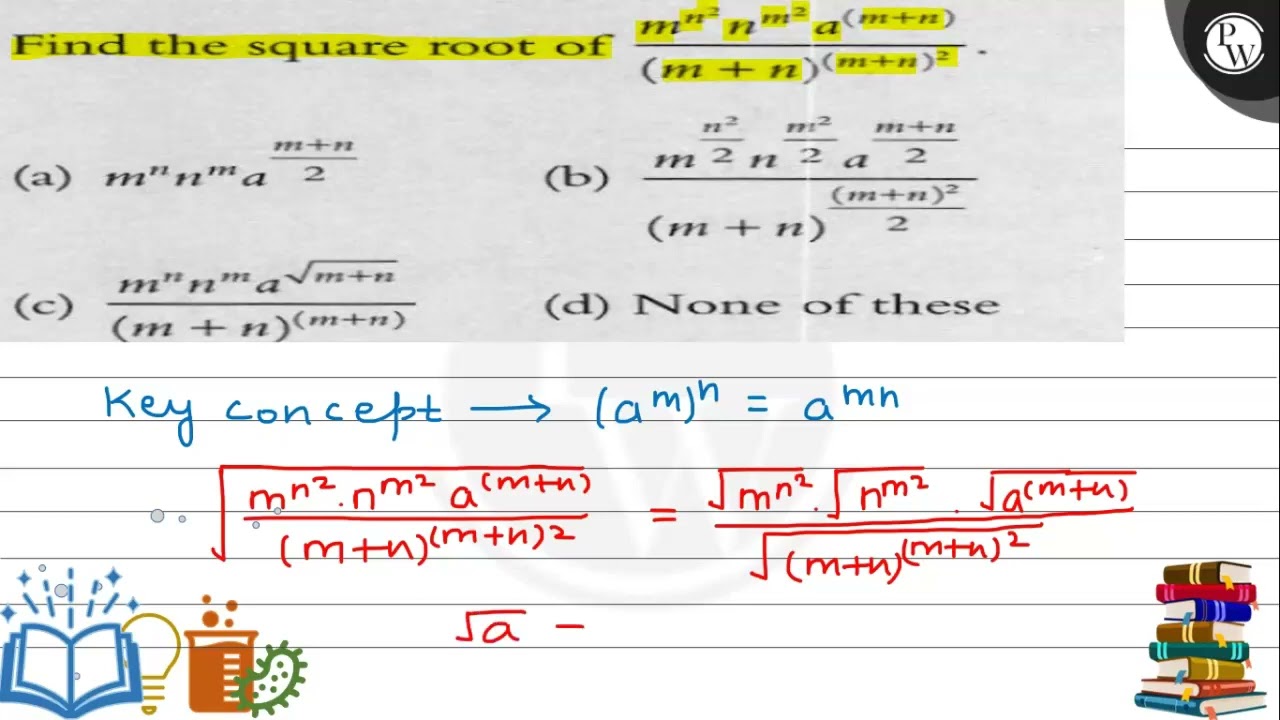 Find the square root of \frac{m^{n^2} n^{m^2} a^{(m+n)}}{(m + n)^{(m+n)^2}}.
(a) m^n n^m a^{\frac{m+n}{2}} (b) \frac{m^{\frac{n^2}{2}} n^{\frac{m^2}{2}} a^{\frac{m+n}{2}}}{(m + n)^{\frac{(m+n)^2}{2}}}
(c) \frac{m^n n^m a^{\sqrt{m+n}}}{(m + n)^{(m+n)}} (d) None of these
Key concept → (a^m)^n = a^{mn}
\sqrt{\frac{m^{n^2} \cdot n^{m^2} a^{(m+n)}}{(m+n)^{(m+n)^2}}} = \frac{\sqrt{m^{n^2}} \cdot \sqrt{n^{m^2}} \cdot \sqrt{a^{(m+n)}}}{\sqrt{(m+n)^{(m+n)^2}}}
\sqrt{a} =
PW